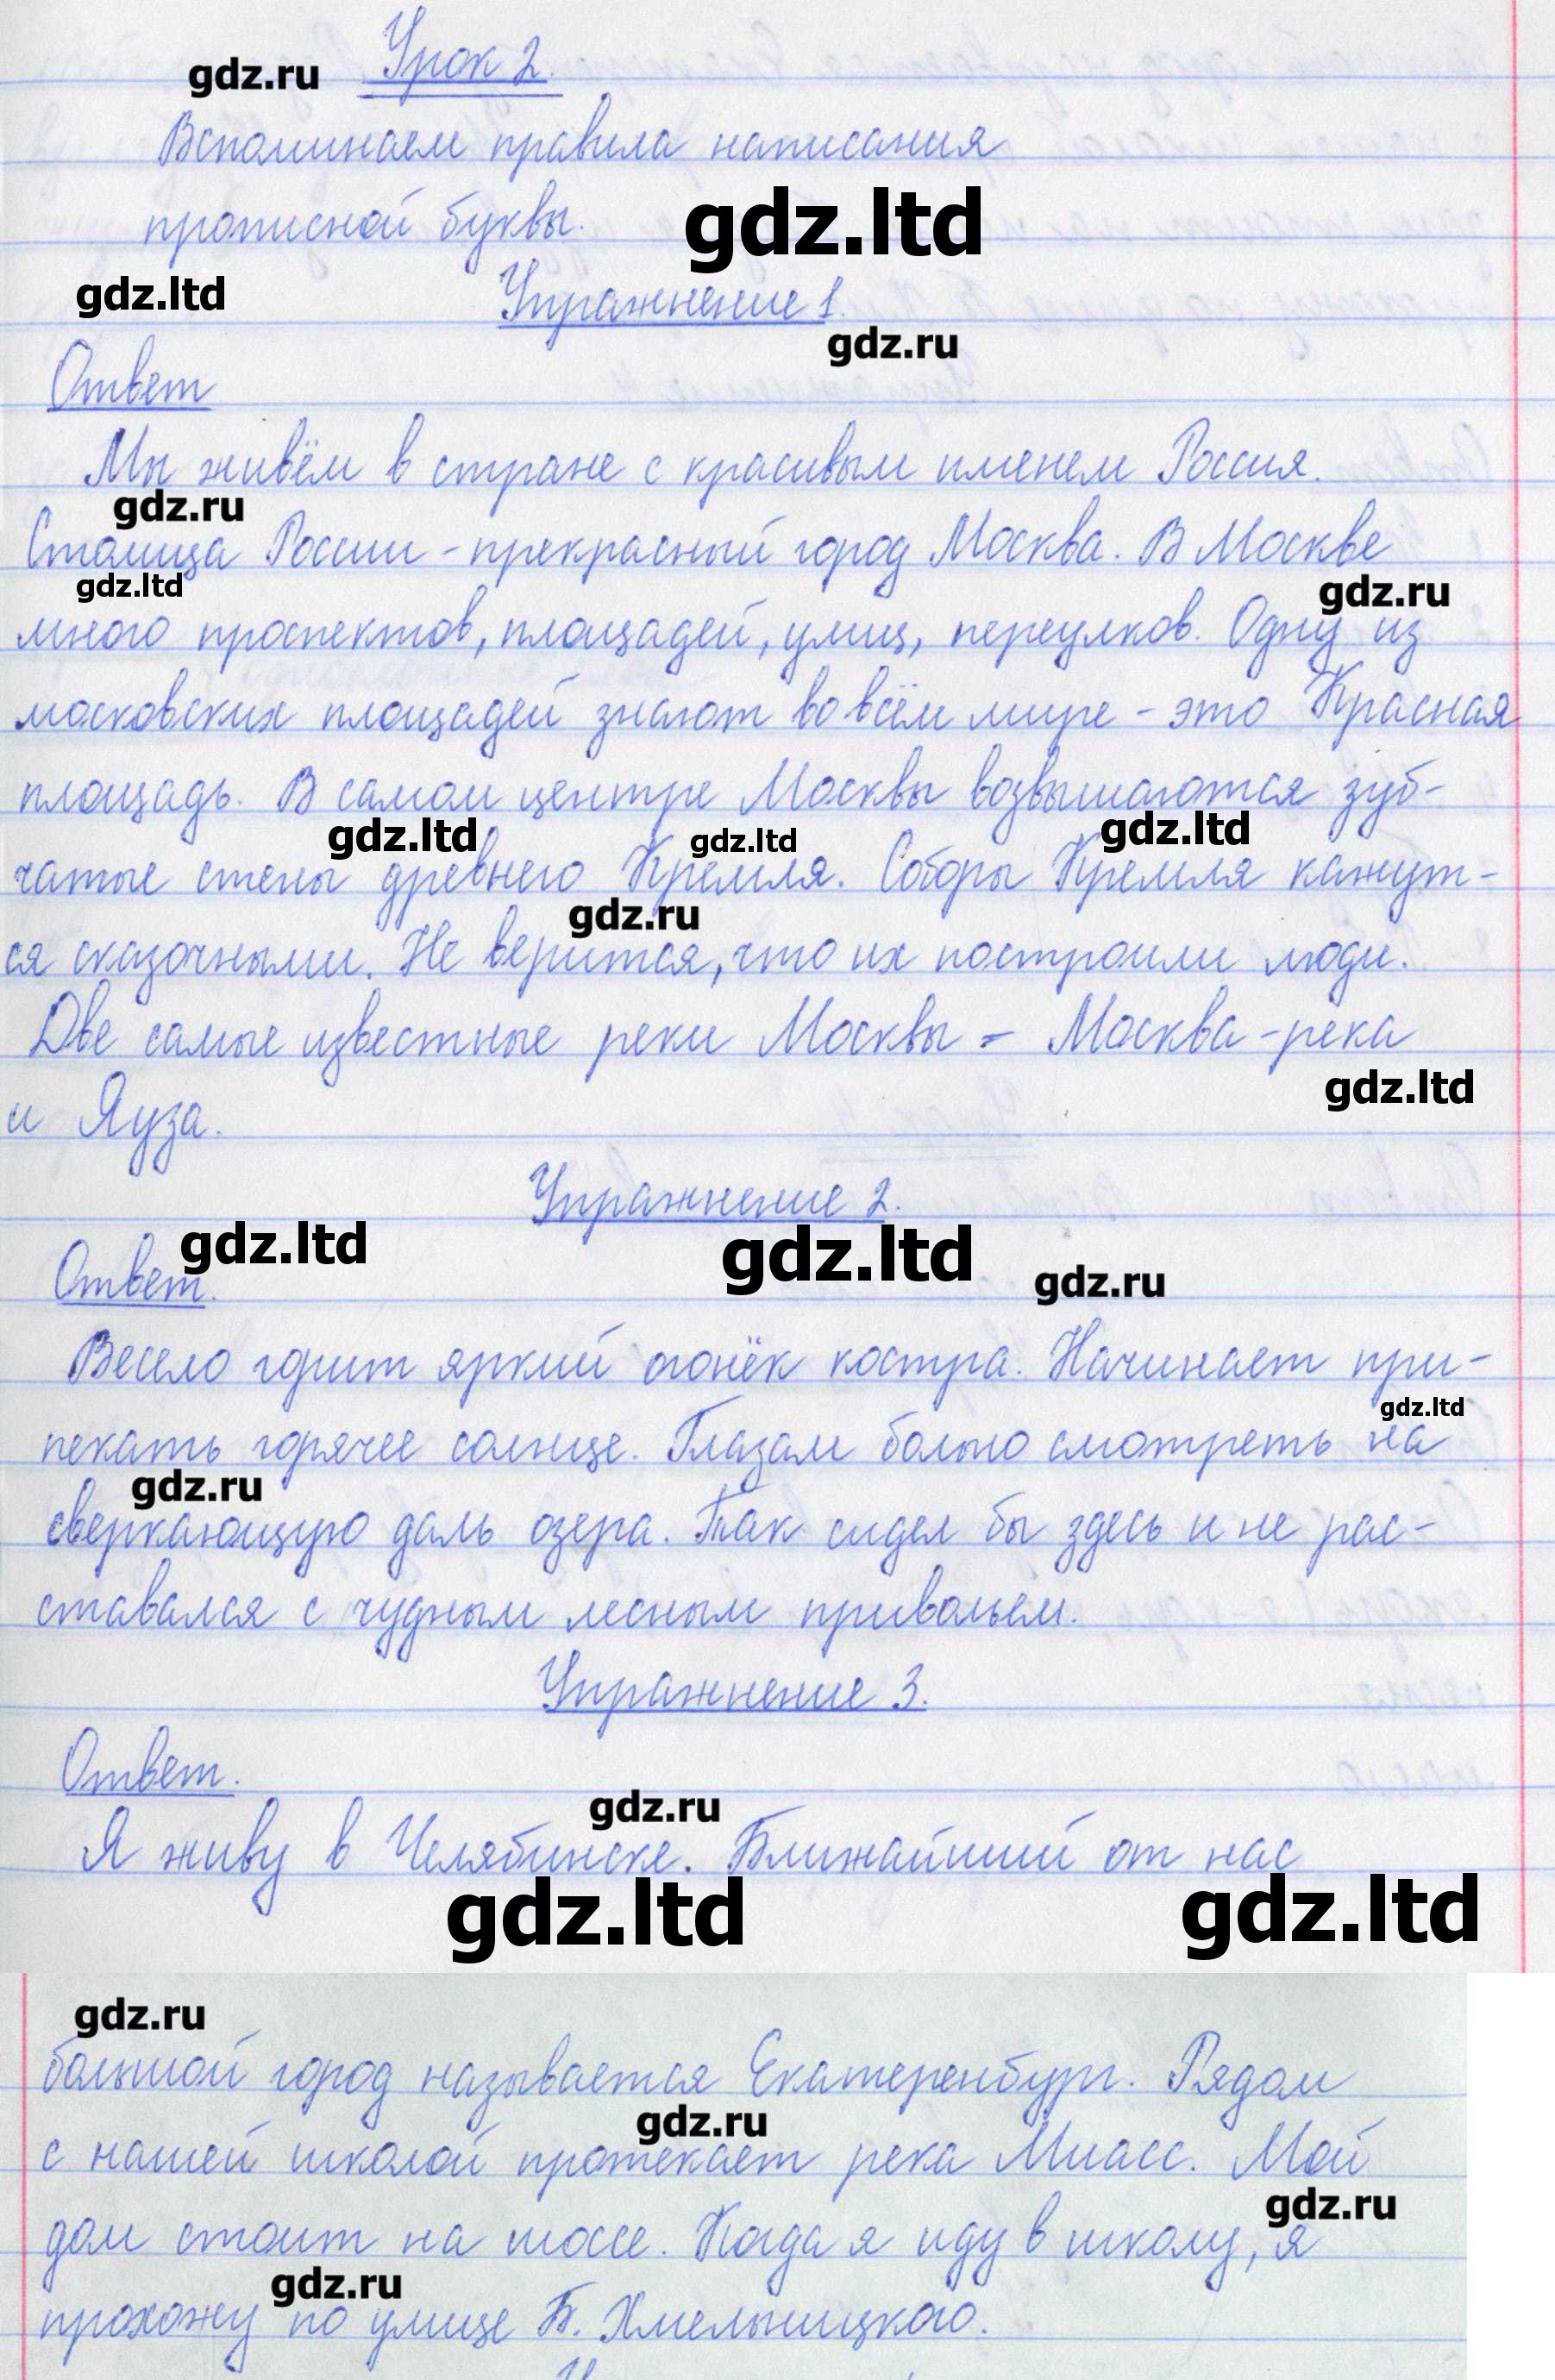 Урок 2.
gdz.ru
Вспоминаем правила написания
прописной буквы.
gdz.ltd
gdz.ltd
Упражнение 1.
gdz.ru
Ответ
Мы живём в стране с красивым именем Россия.
gdz.ru
Столица России - прекрасный город Москва. В Москве
gdz.ltd
gdz.ru
много проспектов, площадей, улиц, переулков. Одну из
московских площадей знают во всём мире - это Красная
площадь. В самом центре Москвы возвышаются зуб-
gdz.ltd
gdz.ltd
gdz.ltd
чатые стены древнего Кремля. Соборы Кремля кажут-
gdz.ru
ся сказочными. Не верится, что их построили люди.
Две самые известные реки Москвы - Москва-река
gdz.ltd
и Яуза.
Упражнение 2.
gdz.ltd
gdz.ltd
gdz.ru
Ответ.
Весело горит яркий огонёк костра. Начинает при-
gdz.ltd
пекать горячее солнце. Глазам больно смотреть на
gdz.ru
сверкающую даль озера. Так сидел бы здесь и не рас-
ставался с чудным лесным привольем.
Упражнение 3.
Ответ.
gdz.ru
Я живу в Челябинске. Ближайший от нас
gdz.ltd
gdz.ltd
gdz.ru
большой город называется Екатеренбург. Рядом
gdz.ru
с нашей школой протекает река Миасс. Мой
gdz.ru
дом стоит на шоссе. Когда я иду в школу, я
gdz.ru
прохожу по улице Б. Хмельницкого.